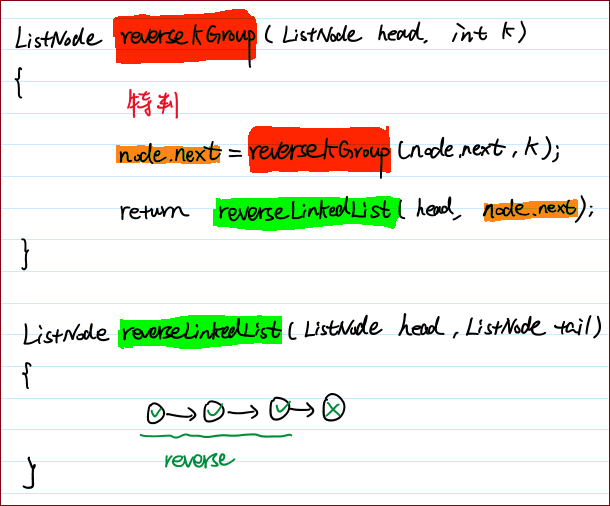 ListNode reverseKGroup ( ListNode head, int K )
{
特判
node.next = reverseKGroup (node.next, K);
return reverseLinkedList( head, node.next);
}
ListNode reverseLinkedList ( ListNode head, ListNode tail)
{
reverse
}